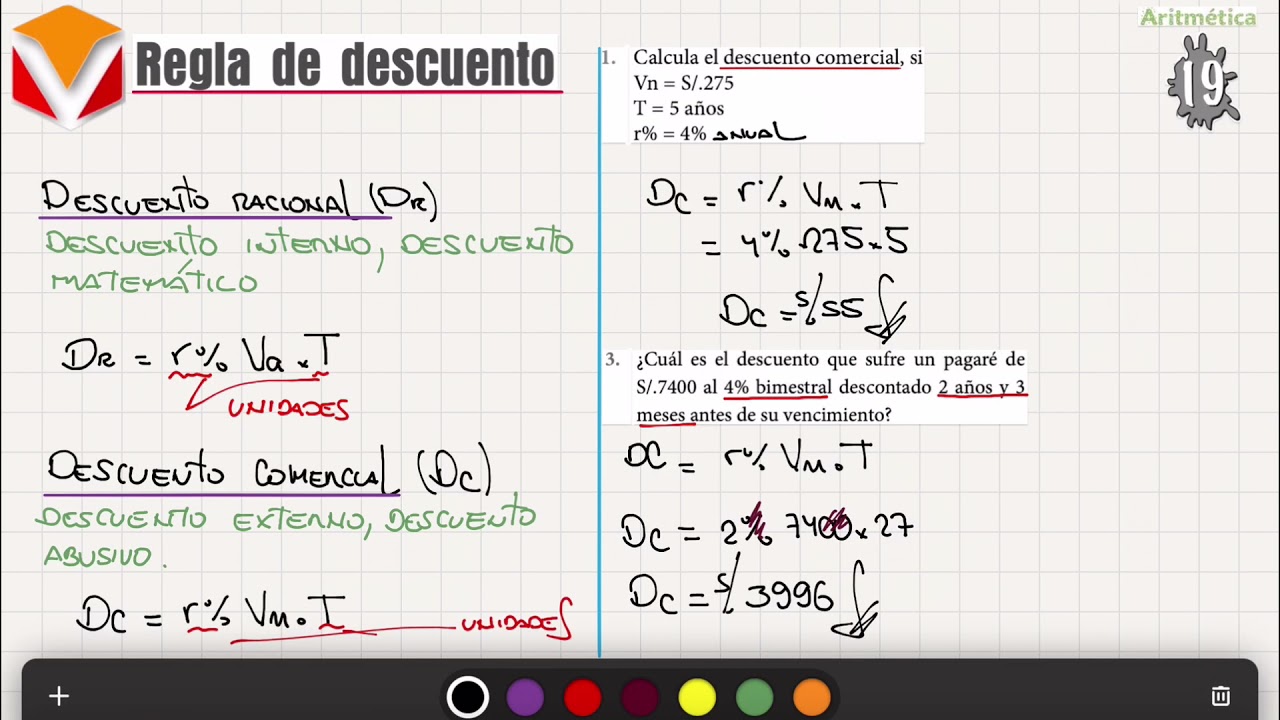 Aritmética
Regla de descuento
19
DESCUENTO RACIONAL (DR)
DESCUENTO INTERNO, DESCUENTO
MATEMÁTICO
DR = r% Va . T
UNIDADES
DESCUENTO COMERCIAL (DC)
DESCUENTO EXTERNO, DESCUENTO
ABUSIVO.
DC = r% Vn . T
UNIDADES
1. Calcula el descuento comercial, si
Vn = S/.275
T = 5 años
r% = 4% ANUAL
DC = r% Vn . T
= 4% 275 x 5
DC = S/ 55
3. ¿Cuál es el descuento que sufre un pagaré de
S/.7400 al 4% bimestral descontado 2 años y 3
meses antes de su vencimiento?
DC = r% Vn . T
DC = 2% 7400 x 27
DC = S/ 3996